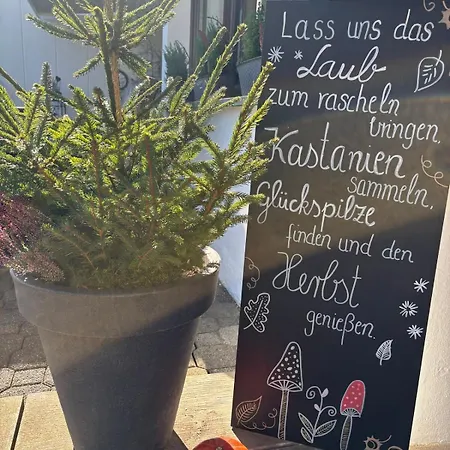 Lass uns das
Laub
zum rascheln
bringen,
Kastanien
sammeln,
Glückspilze
finden und den
Herbst
genießen.